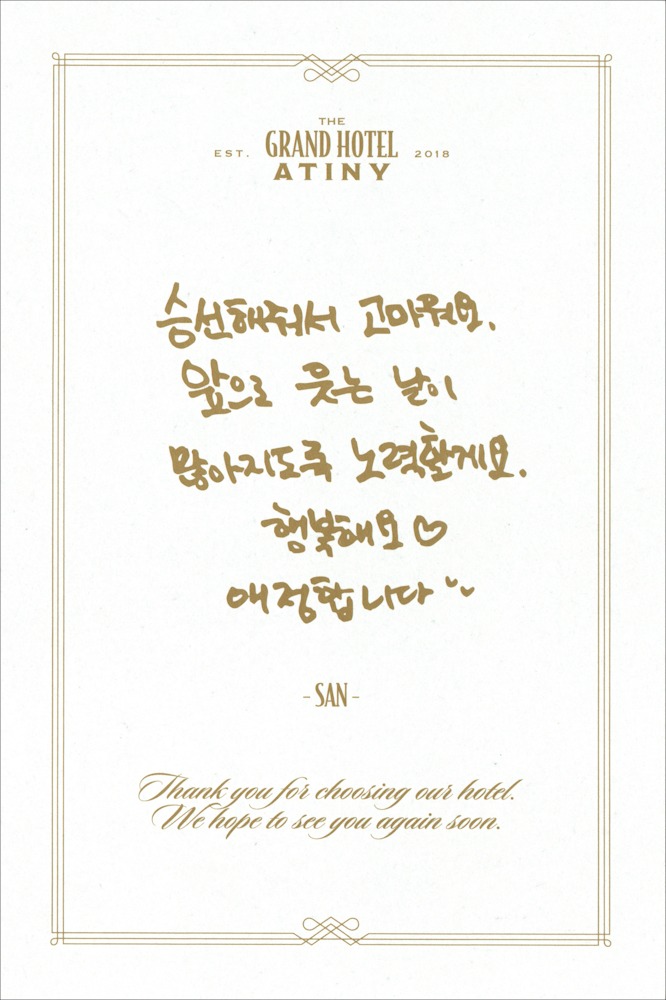 THE
EST. GRAND HOTEL 2018
ATINY
승선해줘서 고마워요.
앞으로 웃는 날이
많아지도록 노력할게요.
행복해요♡
애정합니다
- SAN -
Thank you for choosing our hotel.
We hope to see you again soon.